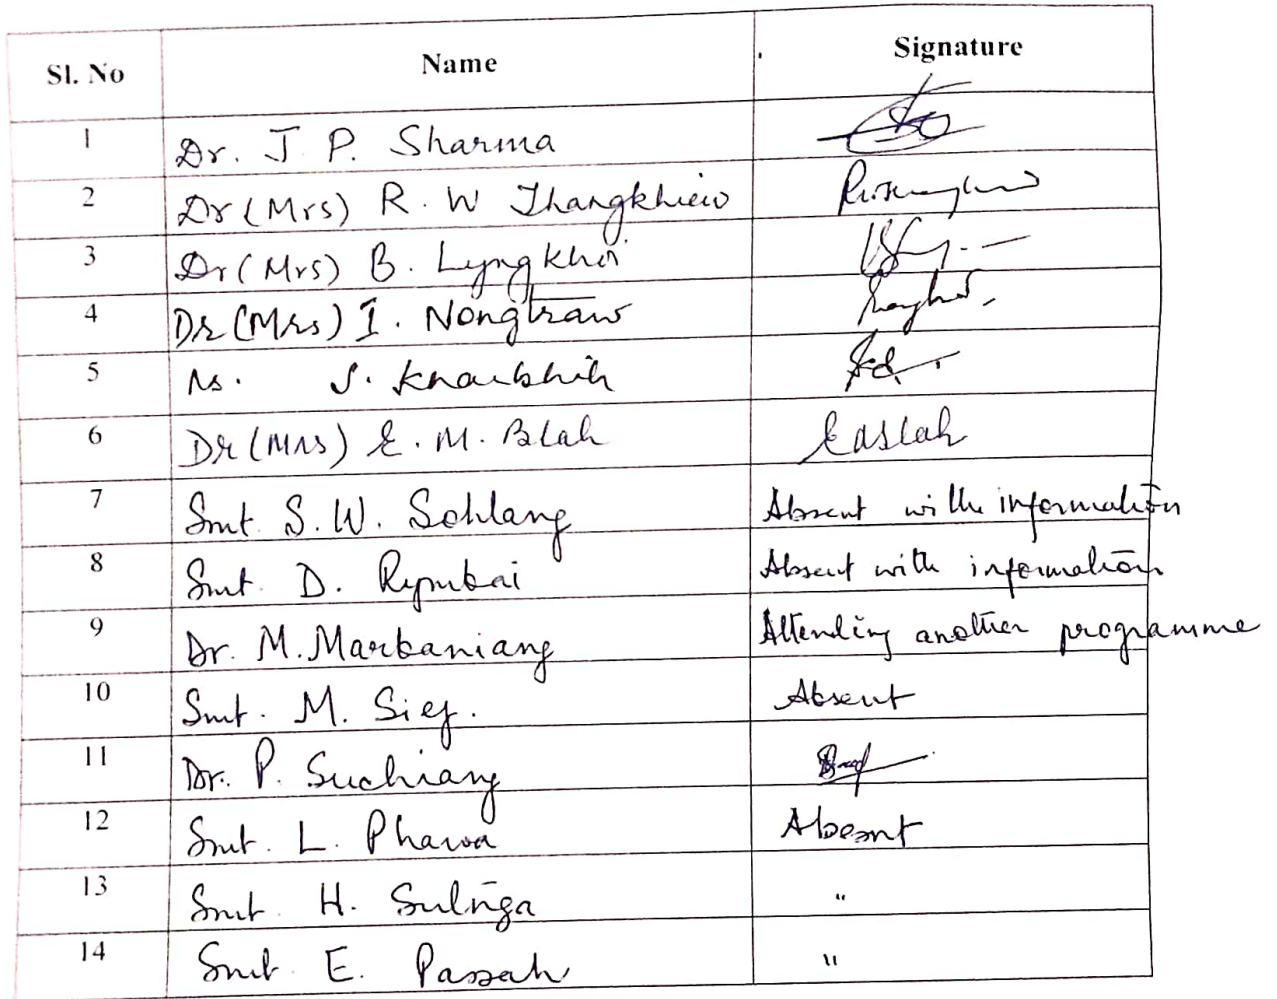 Sl. No Name Signature
1 Dr. J P. Sharma
2 Dr (Mrs) R. W Thangkhiew
3 Dr (Mrs) B. Lyngkhoi
4 Dr (Mrs) I. Nongtraw
5 Ms. S. Kharbhih
6 Dr (Mrs) E. M. Blah EMBlah
7 Smt S. W. Sohlang Absent with information
8 Smt. D. Rymbai Absent with information
9 Dr. M. Marbaniang Attending another programme
10 Smt. M. Siej. Absent
11 Dr. P. Suchiang
12 Smt. L. Phawa Absent
13 Smt H. Sulnga "
14 Smt E. Passah "